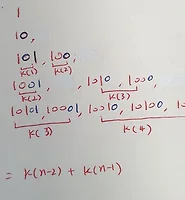 1
10,
101, 100
k(1) k(2)
1001, 1010, 1000,
k(2) k(3)
10101, 10001, 10010, 10100,
k(3) k(4)
= k(n-2) + k(n-1)